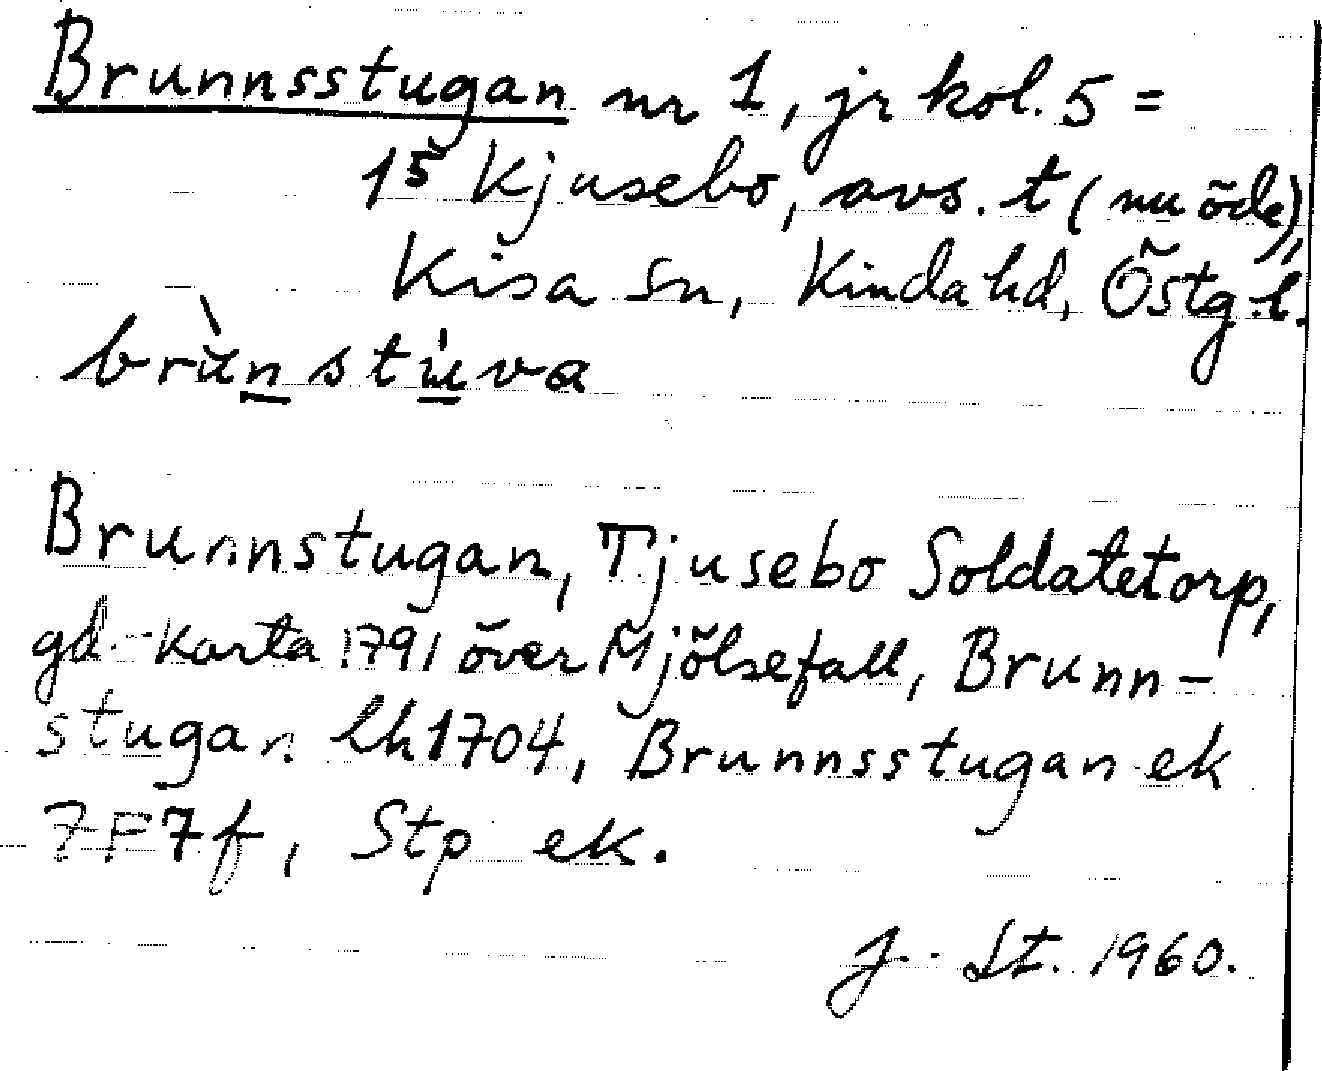 Brunnsstugan nr 1, jr kol. 5 =
1⁵ Kjusebo, avs. t (nu öde),
Kisa sn, Kinda hd, Östg. l.
brùnstùva
Brunnstugan, Tjusebo Soldatetorp,
gd. Karta 1791 över Mjölsefall, Brunn-
stugan lh 1704, Brunnsstugan ek
7F7f, Stp ek.
J. St. 1960.